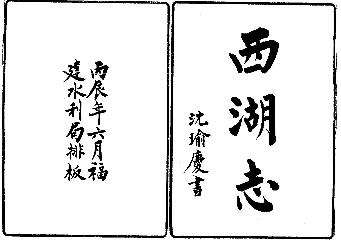 西湖志
沈瑜慶書
丙辰年六月福
建水利局排板